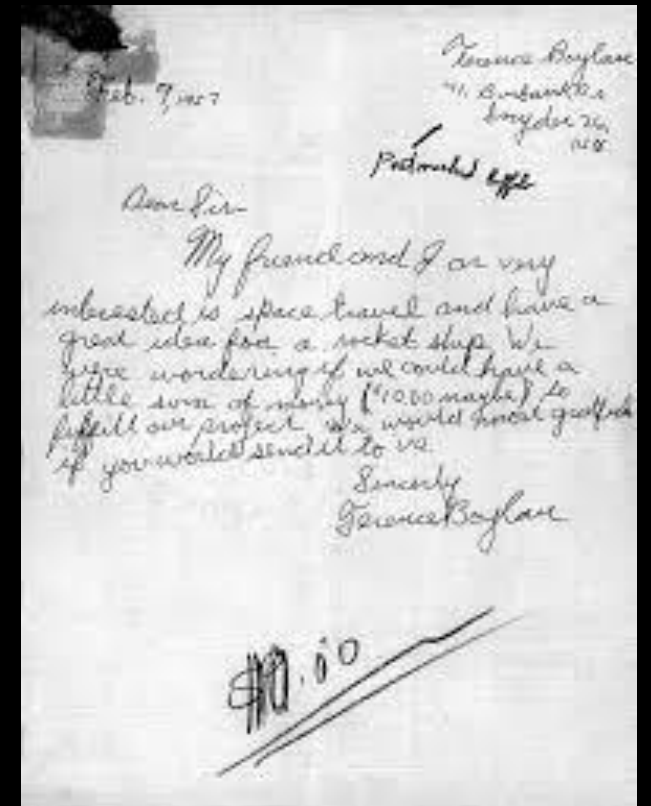 Feb. 9, 1957
Terence Boylan
Burbank Dr
Snyder 26,
N.Y.
Postmarked Buffalo
Dear Sir
My friend and I ar very
interested is space travel and have a
great idea for a rocket ship. We
were wordering if we could have a
little sum of money ($10.00 maybe) to
fulfill our project We would most greatful
if you would send it to us.
Sincerly
Terence Boylan
$10.00